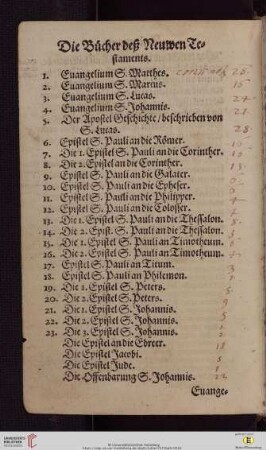 Die Bücher deß Neuwen Te-
staments.
1. Euangelium S. Matthes. 28.
2. Euangelium S. Marcus. 16
3. Euangelium S. Lucas. 24
4. Euangelium S. Johannis. 21
5. Der Apostel Geschichte/ beschrieben von
S. Lucas. 28
6. Epistel S. Pauli an die Römer.
7. Die 1. Epistel S. Pauli an die Corinther.
8. Die 2. Epistel an die Corinther.
9. Epistel S. Pauli an die Galater.
10. Epistel S. Pauli an die Epheser.
11. Epistel S. Pauli an die Philipper.
12. Epistel S. Pauli an die Colosser.
13. Die 1. Epistel S. Pauli an die Thessalon.
14. Die 2. Epist. S. Pauli an die Thessalon.
15. Die 1. Epistel S. Pauli an Timotheum.
16. Die 2. Epistel S. Pauli an Timotheum.
17. Epistel S. Pauli an Titum. 3
18. Epistel S. Pauli an Philemon.
19. Die 1. Epistel S. Peters. 5
20. Die 2. Epistel S. Peters. 3
21. Die 1. Epistel S. Johannis. 5
22. Die 2. Epistel S. Johannis.
23. Die 3. Epistel S. Johannis.
Die Epistel an die Ebreer.
Die Epistel Jacobi. 5
Die Epistel Jude. 1
Die Offenbarung S. Johannis. 22
Euange-